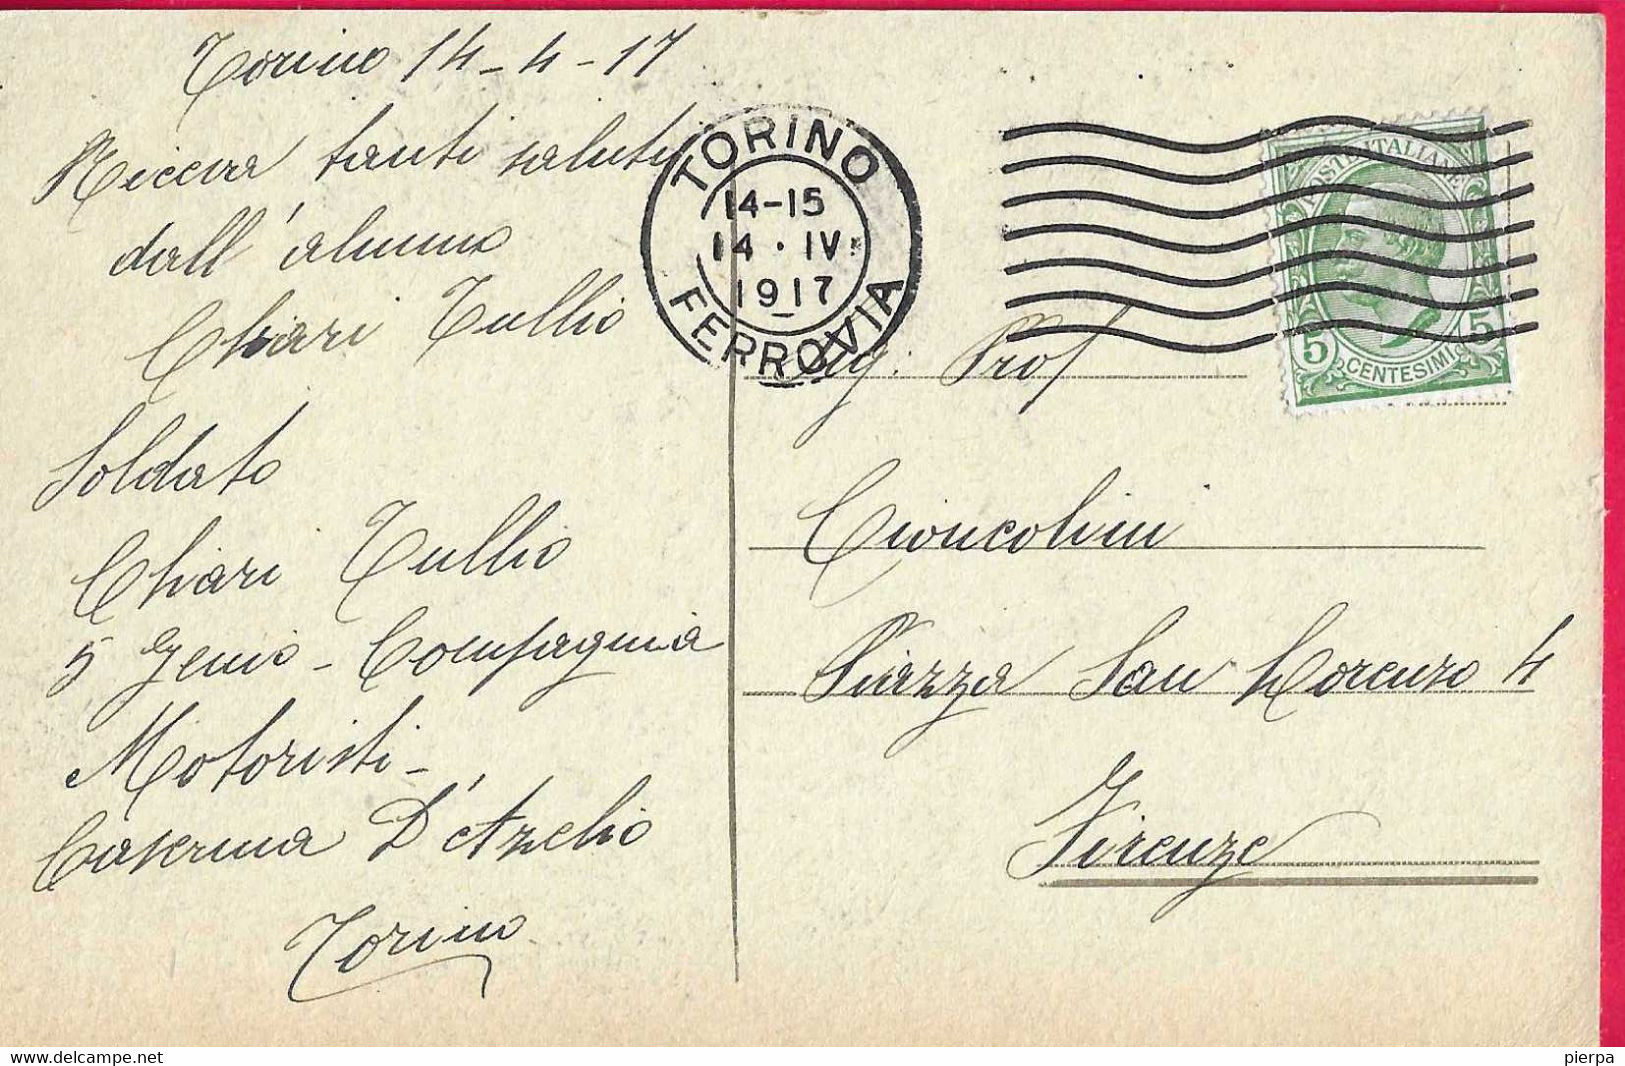 Torino 14-4-17
Riceva tanti saluti
dall'alunno
Chiari Tullio
Soldato
Chiari Tullio
5 Genio - Compagnia
Motoristi -
Caserma D'Azelio
Torino
TORINO
14-15
14 · IV
1917
FERROVIA
POSTE ITALIANE
5 CENTESIMI 5
Sig: Prof
Cioncolini
Piazza San Lorenzo 4
Firenze
pierpa